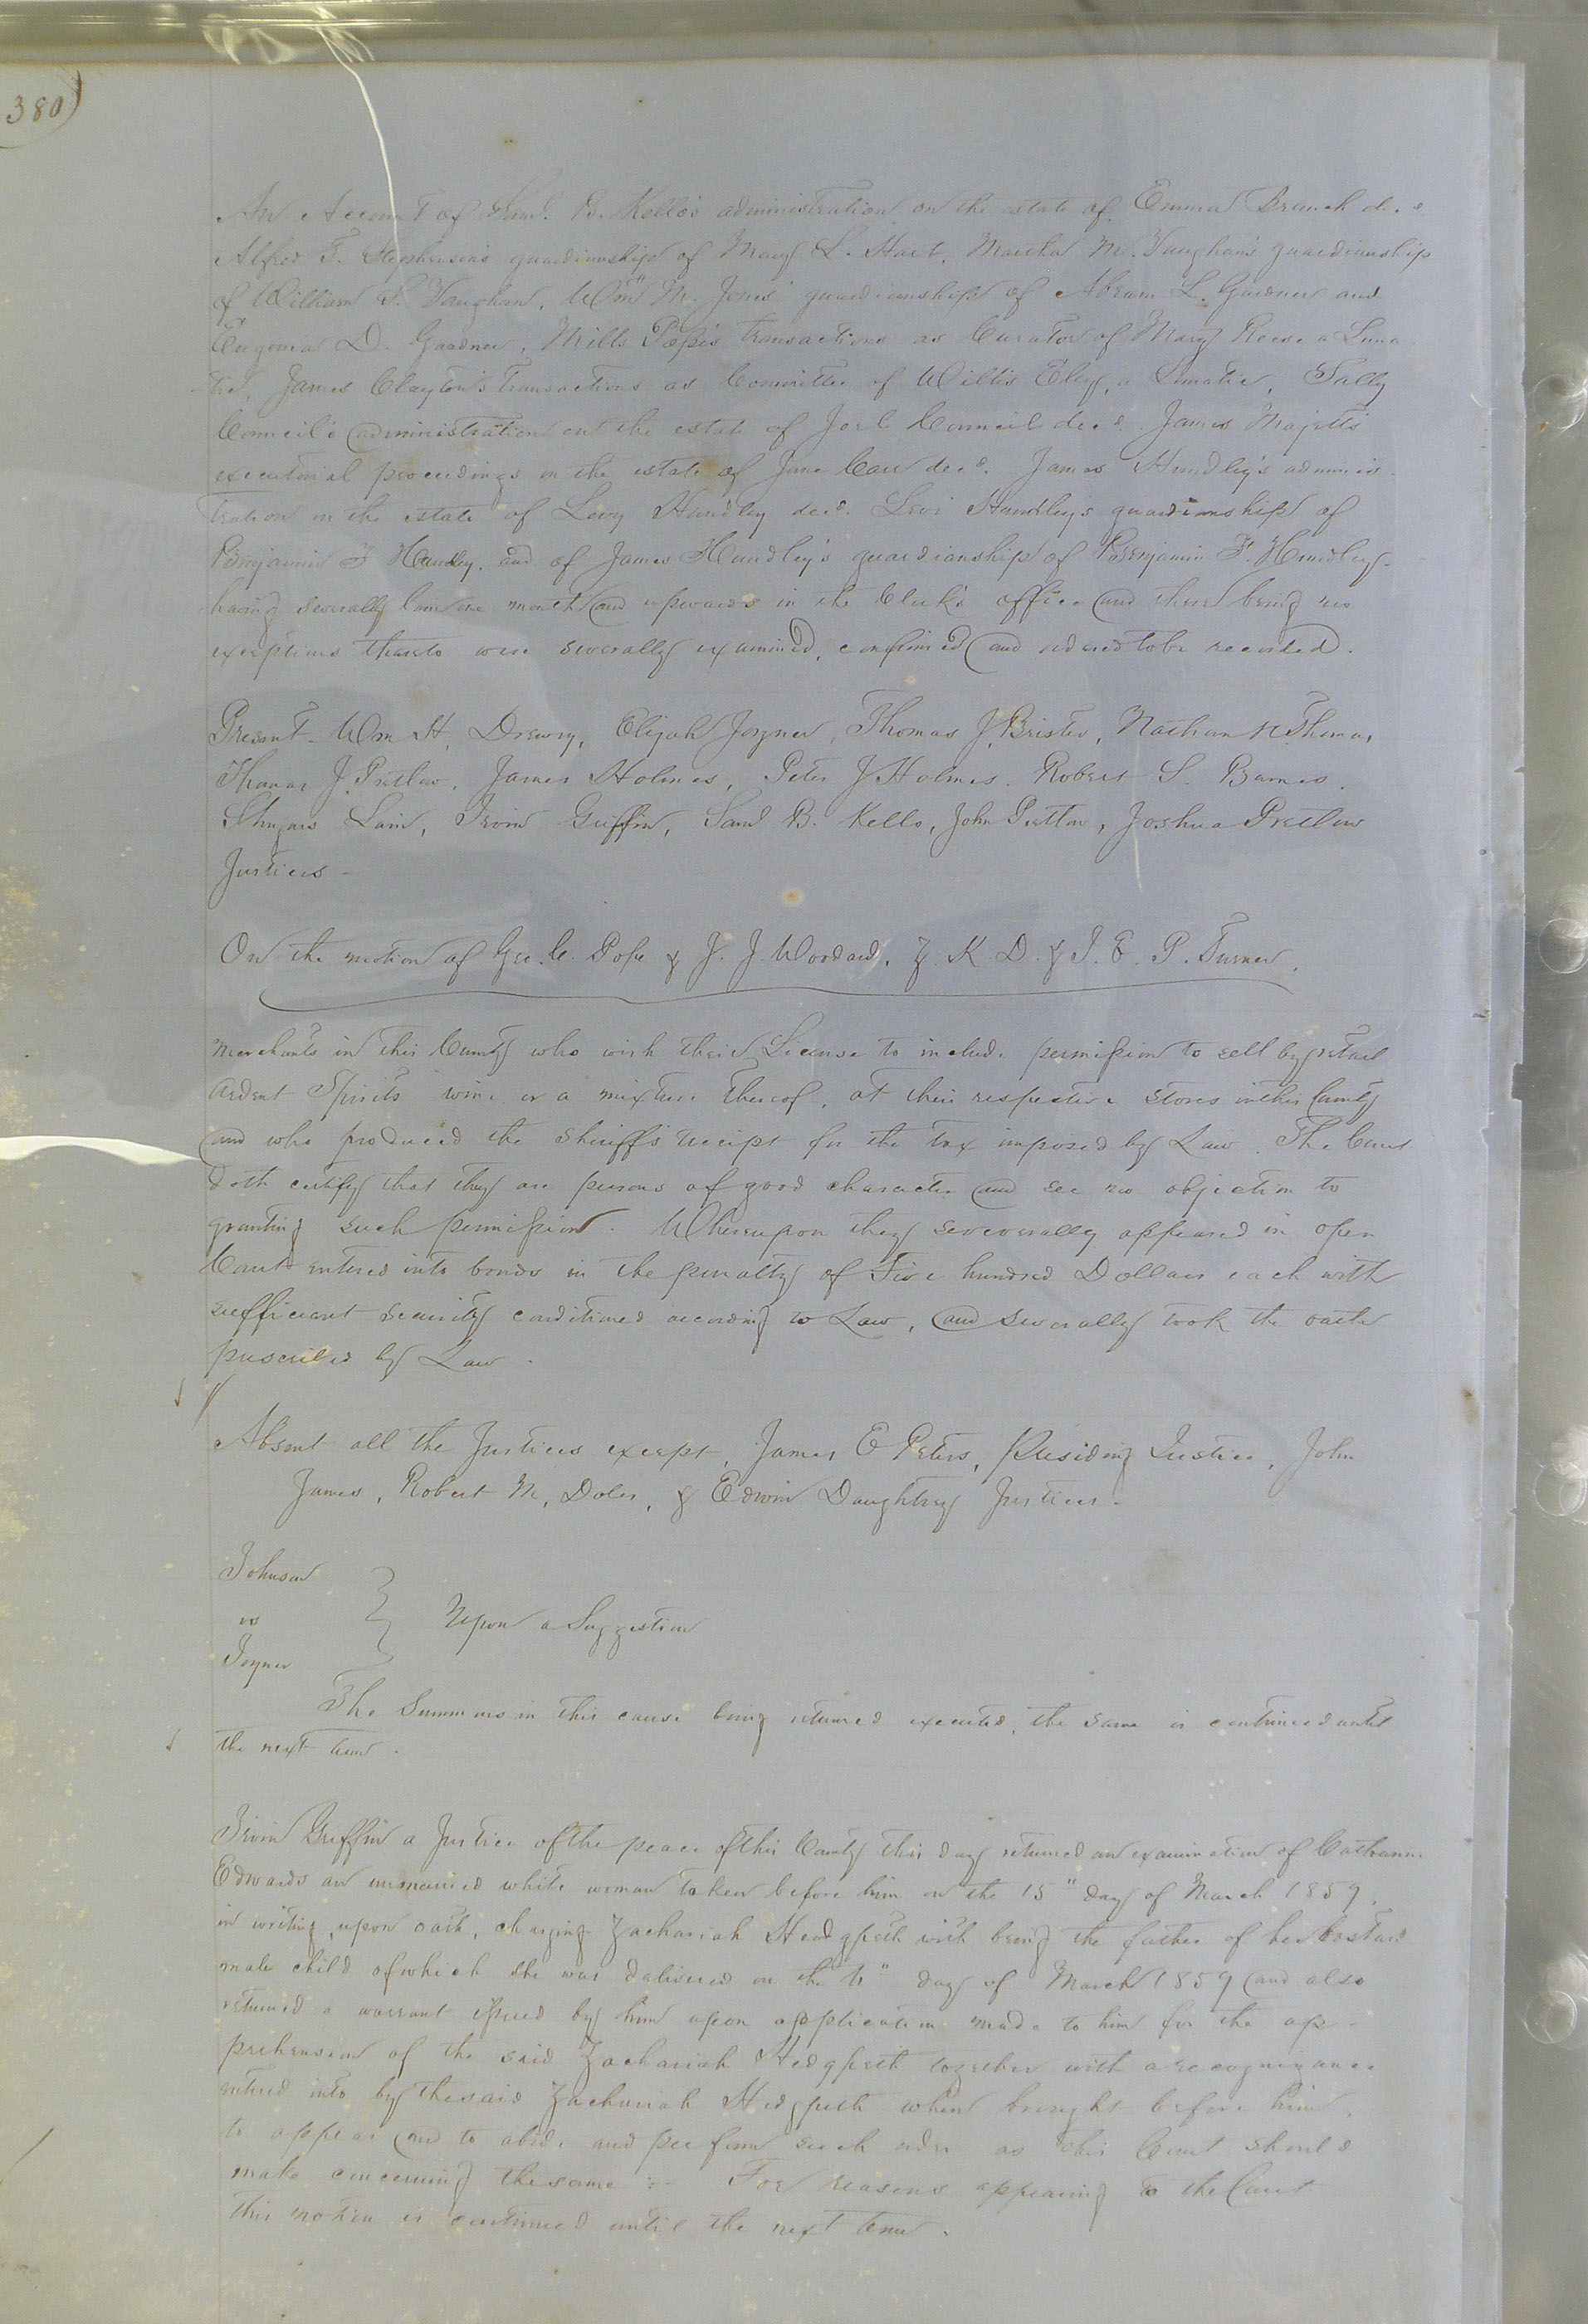 380)
An Account of Saml. B. Kello's administration on the estate of Emma Branch dec.d
Alfred T. Stephenson's guardianship of Mary L. Hart, Martha M. Vaughan's guardianship
of William S. Vaughan, Wm. M. Jones' guardianship of Abram L. Gardner and
Eugenia D. Gardner, Mills Pope's transactions as Curator of Mary Reese a Luna-
tic, James Clayton's transactions as Committee of Willis Eley, a Lunatic, Sally
Council's administration on the estate of Joel Council dec.d. James Majett's
executorial proceedings on the estate of Jane Carr dec.d. James Hundley's adminis-
tration on the estate of Levy Hundley dec.d. Levi Hundley's guardianship of
Benjamin F Hundley. and of James Hundley's guardianship of Benjamin F. Hundley-
having severally lain one month and upwards in the Clerk's office and there being no
exceptions thereto were severally examined, confirmed and ordered to be recorded.
Present- Wm H, Drewry, Elijah Joyner, Thomas J. Bristo, Nathan N Thomas,
Thomas J. Pretlow, James Holmes, Peter J Holmes. Robert S. Barnes.
Lain, Irvin Griffin, Saml B. Kello, John Pretlow, Joshua Pretlow
Justices-
On the motion of Geo. C. Pope & J. J. Woodard, & K. D. & J. E. P. Turner,
Merchants in this County who wish their License to include permission to sell by retail
ardent Spirits wine or a mixture thereof, at their respective stores in this County
and who produced the Sheriff's receipt for the tax imposed by Law. The Court
doth certify that they are persons of good character and see no objection to
granting such permission. Whereupon they severally appeared in open
Court entered into bonds in the penalty of Five hundred Dollars each with
sufficient security conditioned according to Law, and severally took the oath
prescribed by Law.
Absent all the Justices except, James E Peters, Presiding Justice, John
James, Robert M, Doles, & Edwin Daughtrey Justices.
Johnson
vs } Upon a Suggestion
Joyner
The Summons in this cause being returned executed, the same is continued until
the next term.
Irvin Griffin a Justice of the peace of this County this day returned an examination of Catharine
Edwards an unmarried white woman taken before him on the 15" day of March 1859,
in writing, upon oath, charging Zachariah Hedgpeth with being the father of her bastard
male child of which she was delivered on the day of March 1859 and also
returned a warrant issued by him upon application made to him for the ap-
prehension of the said Zachariah Hedgpeth together with a recognizance
entered into by the said Zachariah Hedgpeth when brought before him,
to appear and to abide and perform such order as this Court should
make concerning the same :- For reasons appearing to the Court
this motion is continued until the next term.